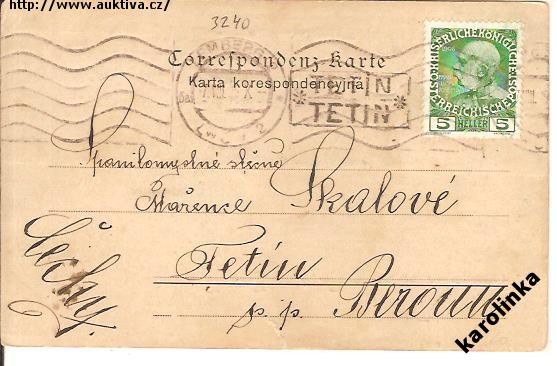 http://www.auktiva.cz/
3240
Correspondenz-Karte
Karta korespondencyjna
TETIN
TETIN
5 HELLER 5
Spanilomyslné slečně
Mařence Skalové
Tetín
p. p. Beroun
Čechy.
karolinka